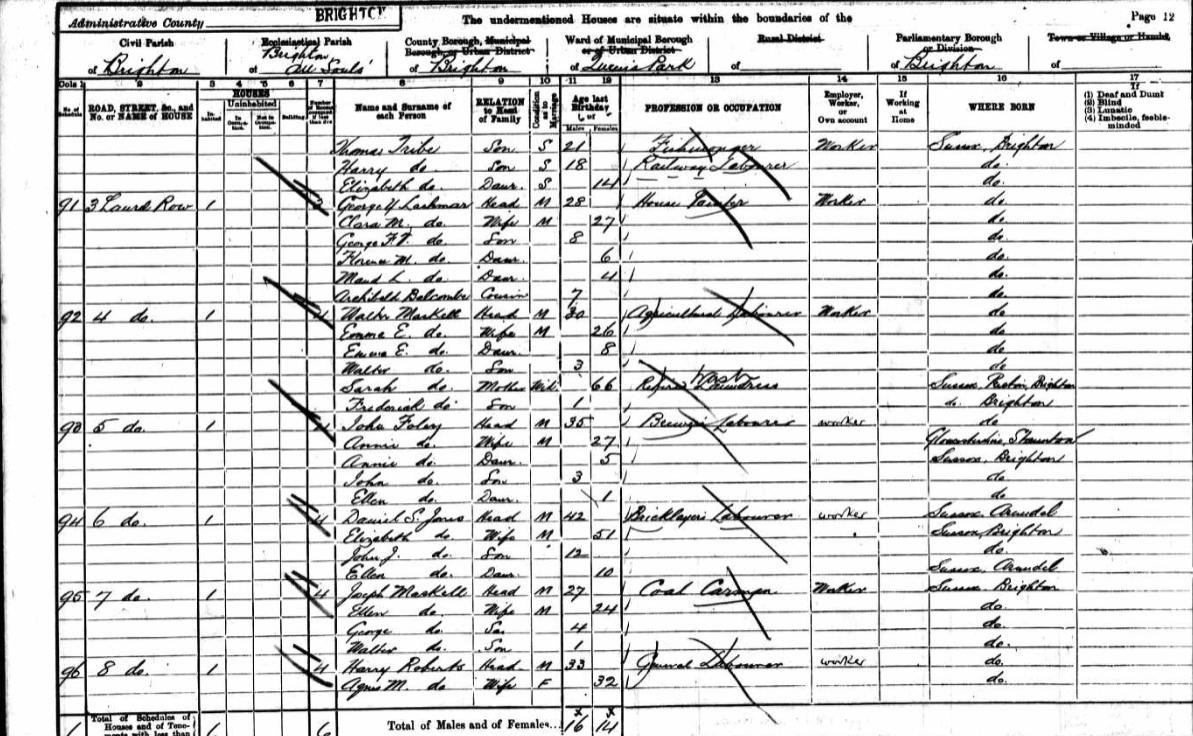 Administrative County BRIGHTON The undermentioned Houses are situate within the boundaries of the Page 12
Civil Parish Ecclesiastical Parish County Borough, Municipal Borough, or Urban District Ward of Municipal Borough or of Urban District Rural District Parliamentary Borough or Division Town or Village or Hamlet
of Brighton of Brighton All Souls' of Brighton of Queens Park of of Brighton of
Cols 1 2 3 4 5 6 7 8 9 10 11 12 13 14 15 16 17
No. of Schedule ROAD, STREET, &c., and No. or NAME of HOUSE HOUSES Inhabited Uninhabited In Occupation Not in Occupation Building Number of Name and Surname of each Person RELATION to Head of Family Condition as to Marriage Age last Birthday of Males Females PROFESSION OR OCCUPATION Employer, Worker, or Own account If Working at Home WHERE BORN If (1) Deaf and Dumb (2) Blind (3) Lunatic (4) Imbecile, feeble-minded
Thomas Tribe Son S 21 Fishmonger Worker Sussex, Brighton
Harry do. Son S 18 Railway Labourer do.
Elizabeth do. Daur. S 14 do.
91 3 Row 1 3 George Lashmar Head M 28 House Painter Worker do.
Clara M. do. Wife M 27 do.
George F. do. Son 8 do.
Florence M. do. Daur. 6 do.
Maud L. do. Daur. 4 do.
Archibald Balcombe Cousin 7 do.
92 4 do. 1 4 Walter Maskell Head M 30 Agricultural Labourer Worker do
Emma E. do. Wife M 26 do.
Emma E. do. Daur. 8 do.
Walter do. Son 3 do
Sarah do. Mother Wid. 66 Retired Laundress Sussex, Brighton
Frederick do Son 1 do. Brighton
93 5 do. 1 4 John Foley Head M 35 Labourer worker do
Annie do. Wife M 27 Gloucestershire, Staunton
Annie do. Daur. 5 Sussex, Brighton
John do. Son 3 do
Ellen do. Daur. 1 do
94 6 do. 1 4 Daniel S. Jones Head M 42 Bricklayers Labourer worker Sussex, Arundel
Elizabeth do. Wife M 51 Sussex Brighton
John J. do. Son 12 do.
Ellen do. Daur. 10 Sussex, Arundel
95 7 do. 1 4 Joseph Maskell Head M 27 Coal Carman Worker Sussex Brighton
Ellen do Wife M 24 do.
George do. Son 4 do.
Walter do. Son 1 do.
96 8 do. 1 4 Harry Roberts Head M 33 General Labourer worker do.
Agnes M. do Wife F 32 do.
Total of Schedules of Houses and of Tenements with less than 1 6 Total of Males and of Females... 16 14